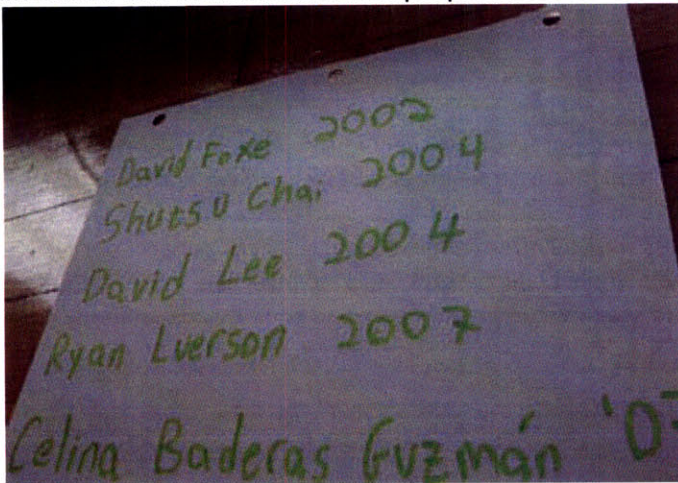 David Foxe 2002
Shutsu Chai 2004
David Lee 2004
Ryan Lverson 2007
Celina Baderas Guzmán '07